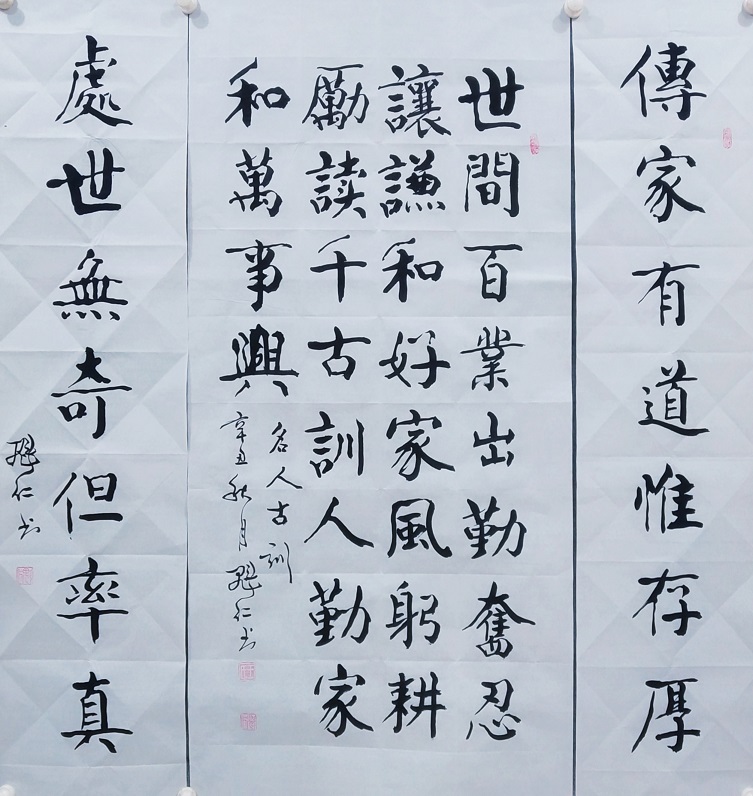 傳家有道惟存厚
世間百業出勤奮忍
讓謙和好家風躬耕
勵读千古訓人勤家
和萬事興
名人古訓
辛丑秋月
仁书
處世無奇但率真
仁书